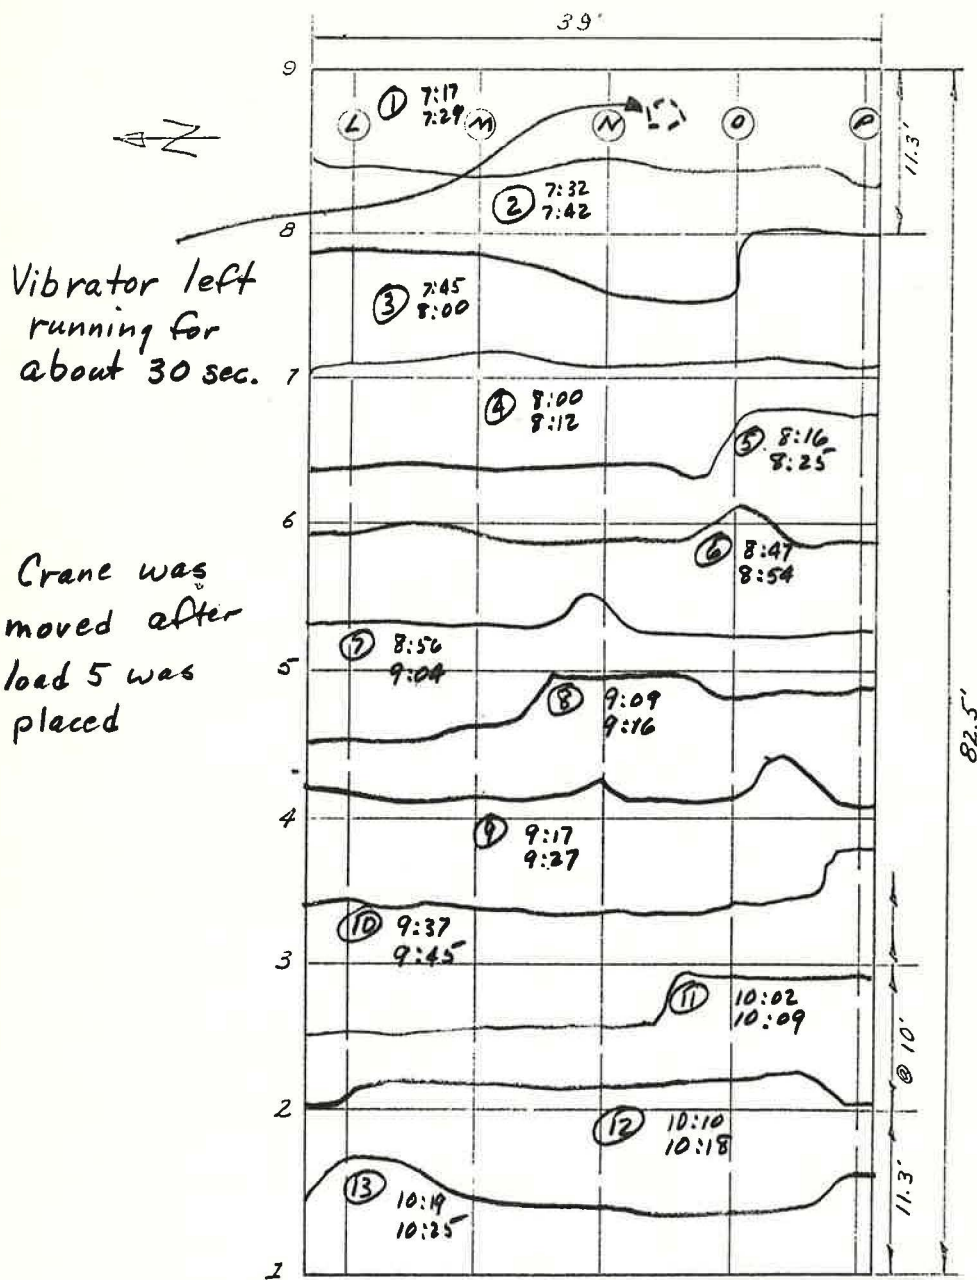 39'
9
① 7:17
7:29
L
M
N
O
P
11.3'
N
② 7:32
7:42
8
Vibrator left
running for
about 30 sec.
③ 7:45
8:00
7
④ 8:00
8:12
⑤ 8:16
8:25
6
⑥ 8:47
8:54
Crane was
moved after
load 5 was
placed
⑦ 8:56
9:04
5
⑧ 9:09
9:16
82.5'
4
⑨ 9:17
9:27
⑩ 9:37
9:45
3
⑪ 10:02
10:09
@ 10'
2
⑫ 10:10
10:18
11.3'
⑬ 10:19
10:25
1